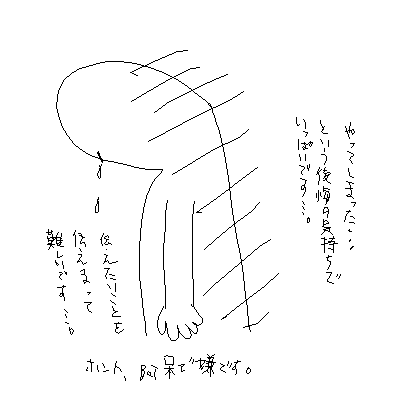 やってしまった…
という後悔の気持ちで
いっぱいです…。
伝えたいことを
伝えまって
難しいです…。
ホント、Bot呆で嫌です。